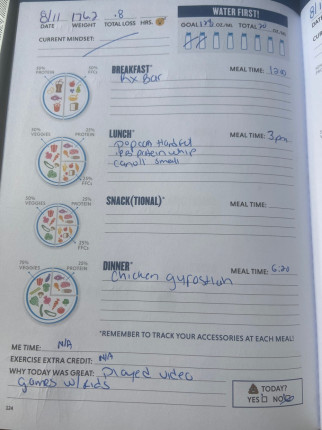 8/11 176.2 .8
DATE WEIGHT TOTAL LOSS HRS.
CURRENT MINDSET:
WATER FIRST!
GOAL OZ./HR. TOTAL OZ./HR.
50% PROTEIN
50% FFCs
BREAKFAST*
MEAL TIME: 1200
Rx Bar
LUNCH*
MEAL TIME: 3pm
popcorn Handful
PB protein whip
small
75% VEGGIES
25% PROTEIN
25% FFCs
SNACK(TIONAL)*
MEAL TIME:
50% VEGGIES
25% PROTEIN
25% FFCs
DINNER*
MEAL TIME: 6:30
Chicken
70% VEGGIES
30% PROTEIN
*REMEMBER TO TRACK YOUR ACCESSORIES AT EACH MEAL!
ME TIME: N/A
EXERCISE EXTRA CREDIT: N/A
WHY TODAY WAS GREAT: Played video
games w/ kids
TODAY?
YES NO
324